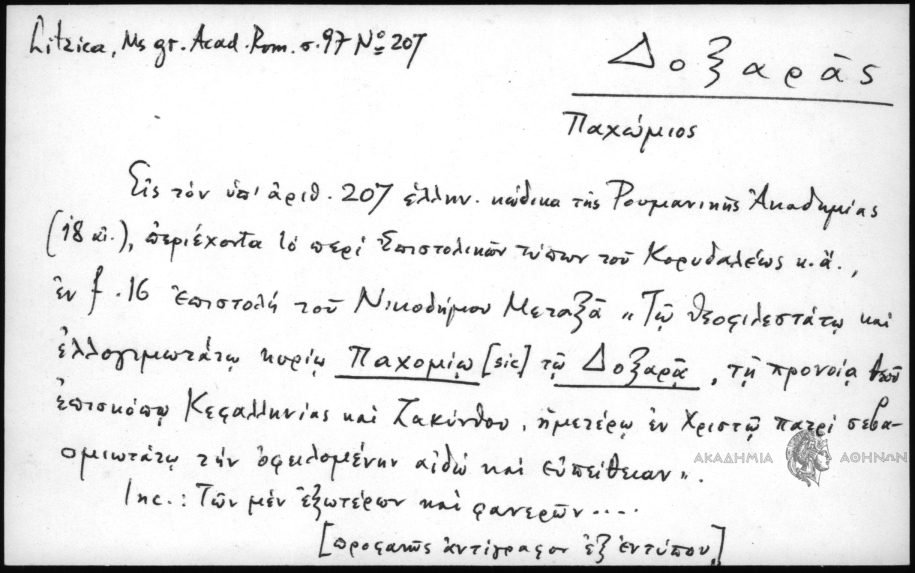 Litzica, Ms gr. Acad. Rom. σ. 97 Nº 207
Δοξαρᾶς
Παχώμιος
Εἰς τὸν ὑπ' ἀριθ. 207 ἑλλην. κώδικα τῆς Ρουμανικῆς Ἀκαδημίας
(18 αἰ.), περιέχοντα τὸ περὶ Ἐπιστολικῶν τύπων τοῦ Κορυδαλέως κ.ἄ.,
ἐν f. 16 ἐπιστολὴ τοῦ Νικοδήμου Μεταξᾶ "Τῷ θεοφιλεστάτῳ καὶ
ἐλλογιμωτάτῳ κυρίῳ Παχομίῳ [sic] τῷ Δοξαρᾷ, τῇ προνοίᾳ θεοῦ
ἐπισκόπῳ Κεφαλληνίας καὶ Ζακύνθου, ἡμετέρῳ ἐν Χριστῷ πατρὶ σεβα-
σμιωτάτῳ τὴν ὀφειλομένην αἰδῶ καὶ εὐπείθειαν".
Inc.: Τῶν μὲν ἐξωτέρων καὶ φανερῶν....
[προφανῶς ἀντίγραφον ἐξ ἐντύπου]
ΑΚΑΔΗΜΙΑ ΑΘΗΝΩΝ